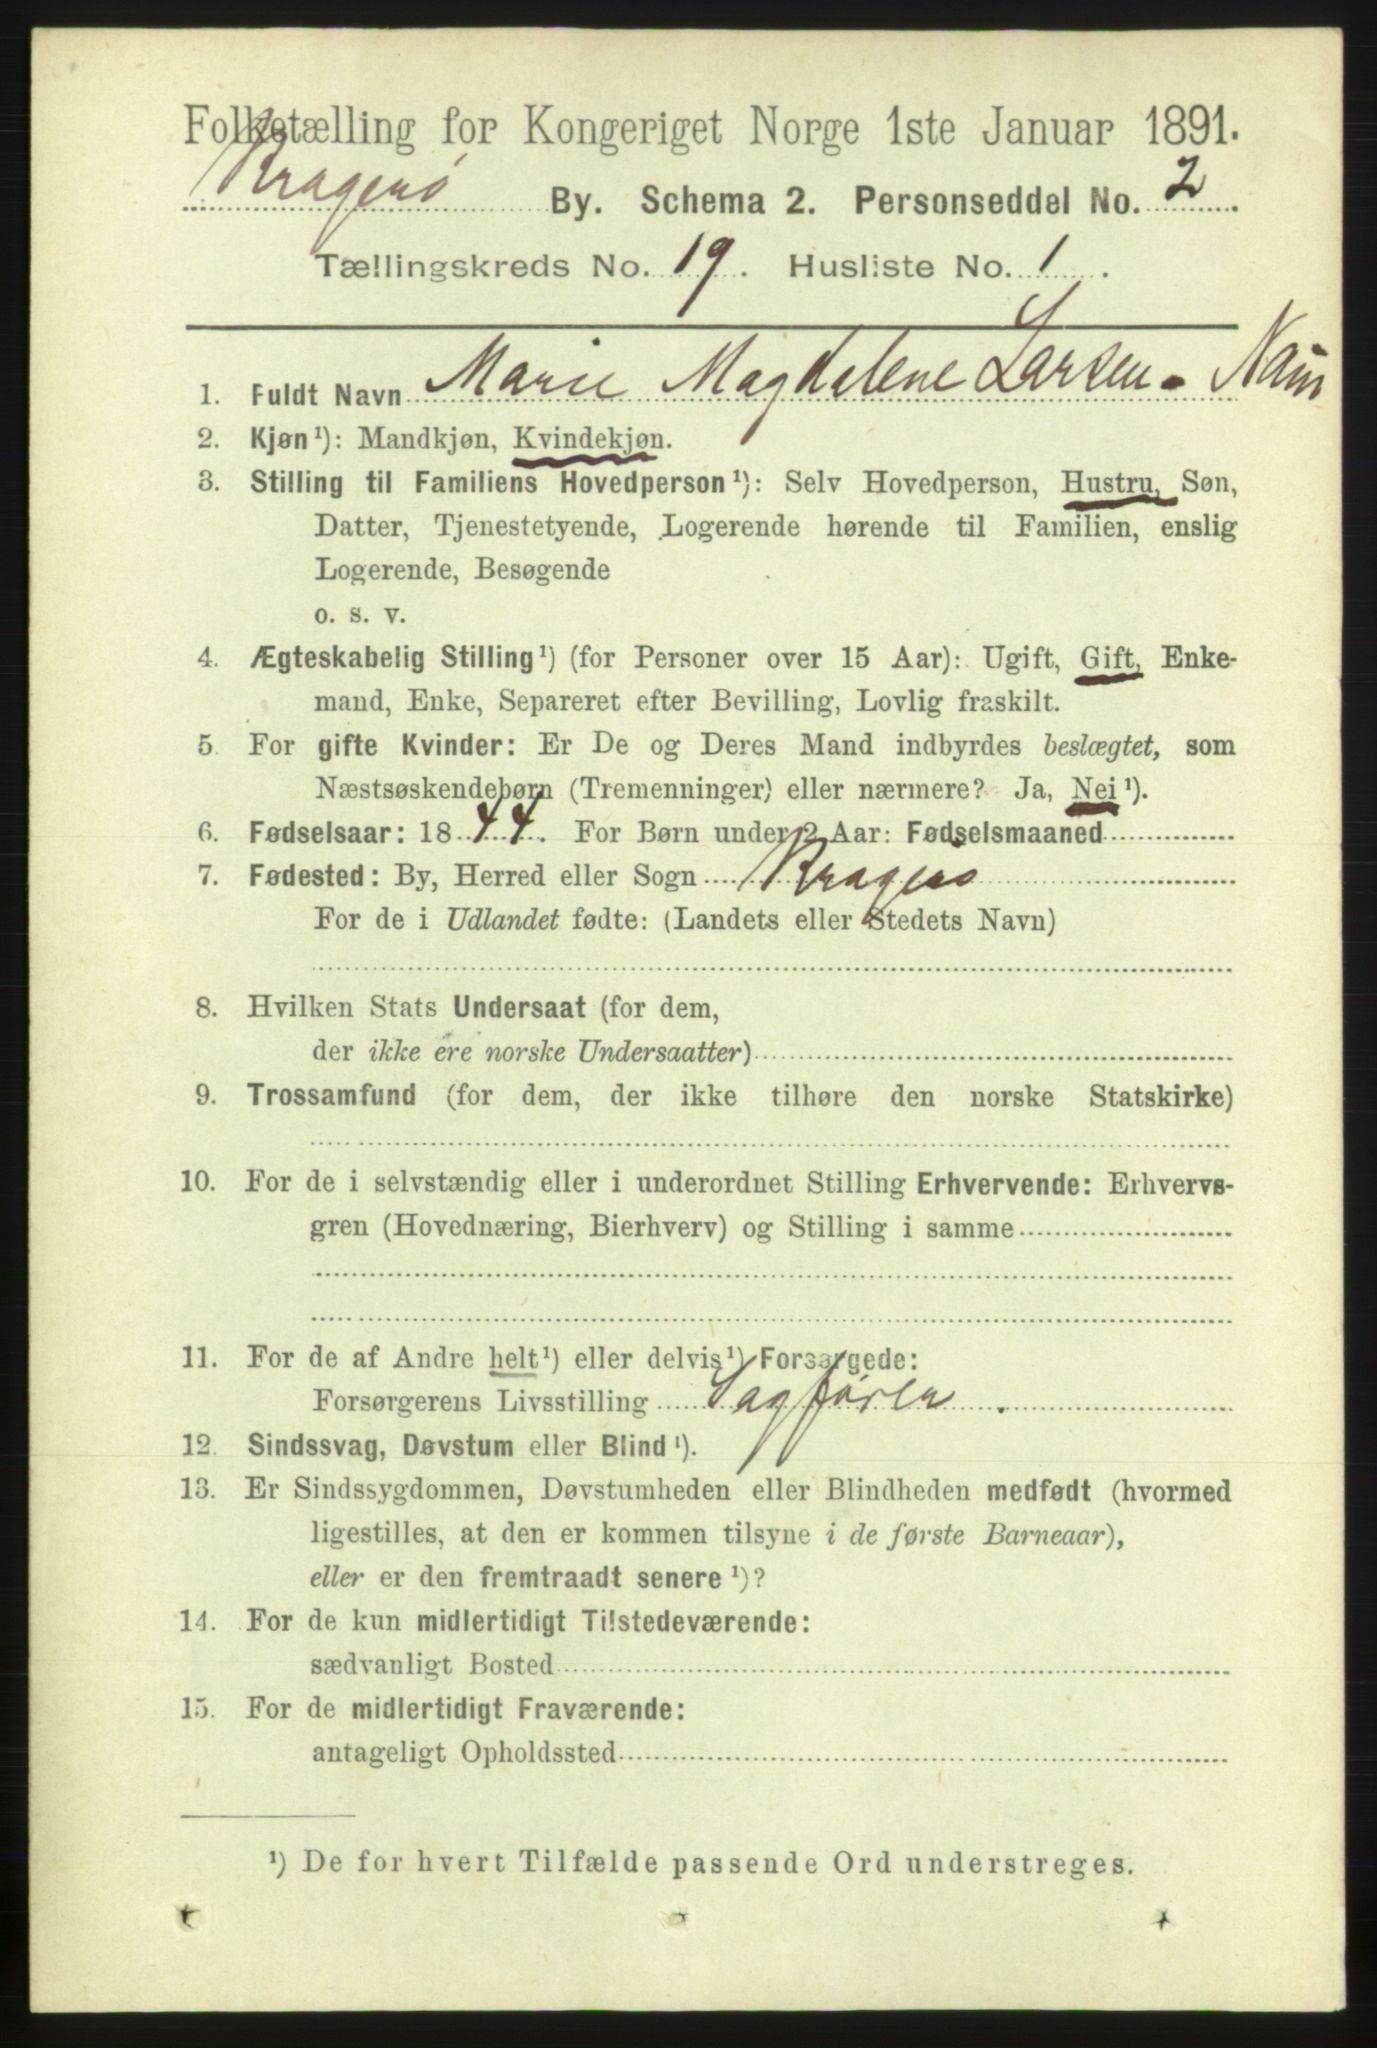 Folketælling for Kongeriget Norge 1ste Januar 1891.
Kragerø By. Schema 2. Personseddel No. 2
Tællingskreds No. 19. Husliste No. 1.
1. Fuldt Navn Marie Magdalene Larsen.
2. Kjøn¹): Mandkjøn, Kvindekjøn.
3. Stilling til Familiens Hovedperson¹): Selv Hovedperson, Hustru, Søn,
Datter, Tjenestetyende, Logerende hørende til Familien, enslig
Logerende, Besøgende
o. s. v.
4. Ægteskabelig Stilling¹) (for Personer over 15 Aar): Ugift, Gift, Enke-
mand, Enke, Separeret efter Bevilling, Lovlig fraskilt.
5. For gifte Kvinder: Er De og Deres Mand indbyrdes beslægtet, som
Næstsøskendebørn (Tremenninger) eller nærmere? Ja, Nei¹).
6. Fødselsaar: 1844. For Børn under 2 Aar: Fødselsmaaned
7. Fødested: By, Herred eller Sogn Kragerø
For de i Udlandet fødte: (Landets eller Stedets Navn)
8. Hvilken Stats Undersaat (for dem,
der ikke ere norske Undersaatter)
9. Trossamfund (for dem, der ikke tilhøre den norske Statskirke)
10. For de i selvstændig eller i underordnet Stilling Erhvervende: Erhvervs-
gren (Hovednæring, Bierhverv) og Stilling i samme
11. For de af Andre helt¹) eller delvis¹) Forsørgede:
Forsørgerens Livsstilling Sagfører.
12. Sindssvag, Døvstum eller Blind¹).
13. Er Sindssygdommen, Døvstumheden eller Blindheden medfødt (hvormed
ligestilles, at den er kommen tilsyne i de første Barneaar),
eller er den fremtraadt senere¹)?
14. For de kun midlertidigt Tilstedeværende:
sædvanligt Bosted
15. For de midlertidigt Fraværende:
antageligt Opholdssted
¹) De for hvert Tilfælde passende Ord understreges.